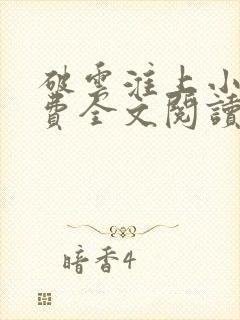 破雲淮上小
費全文閱讀
暗香4